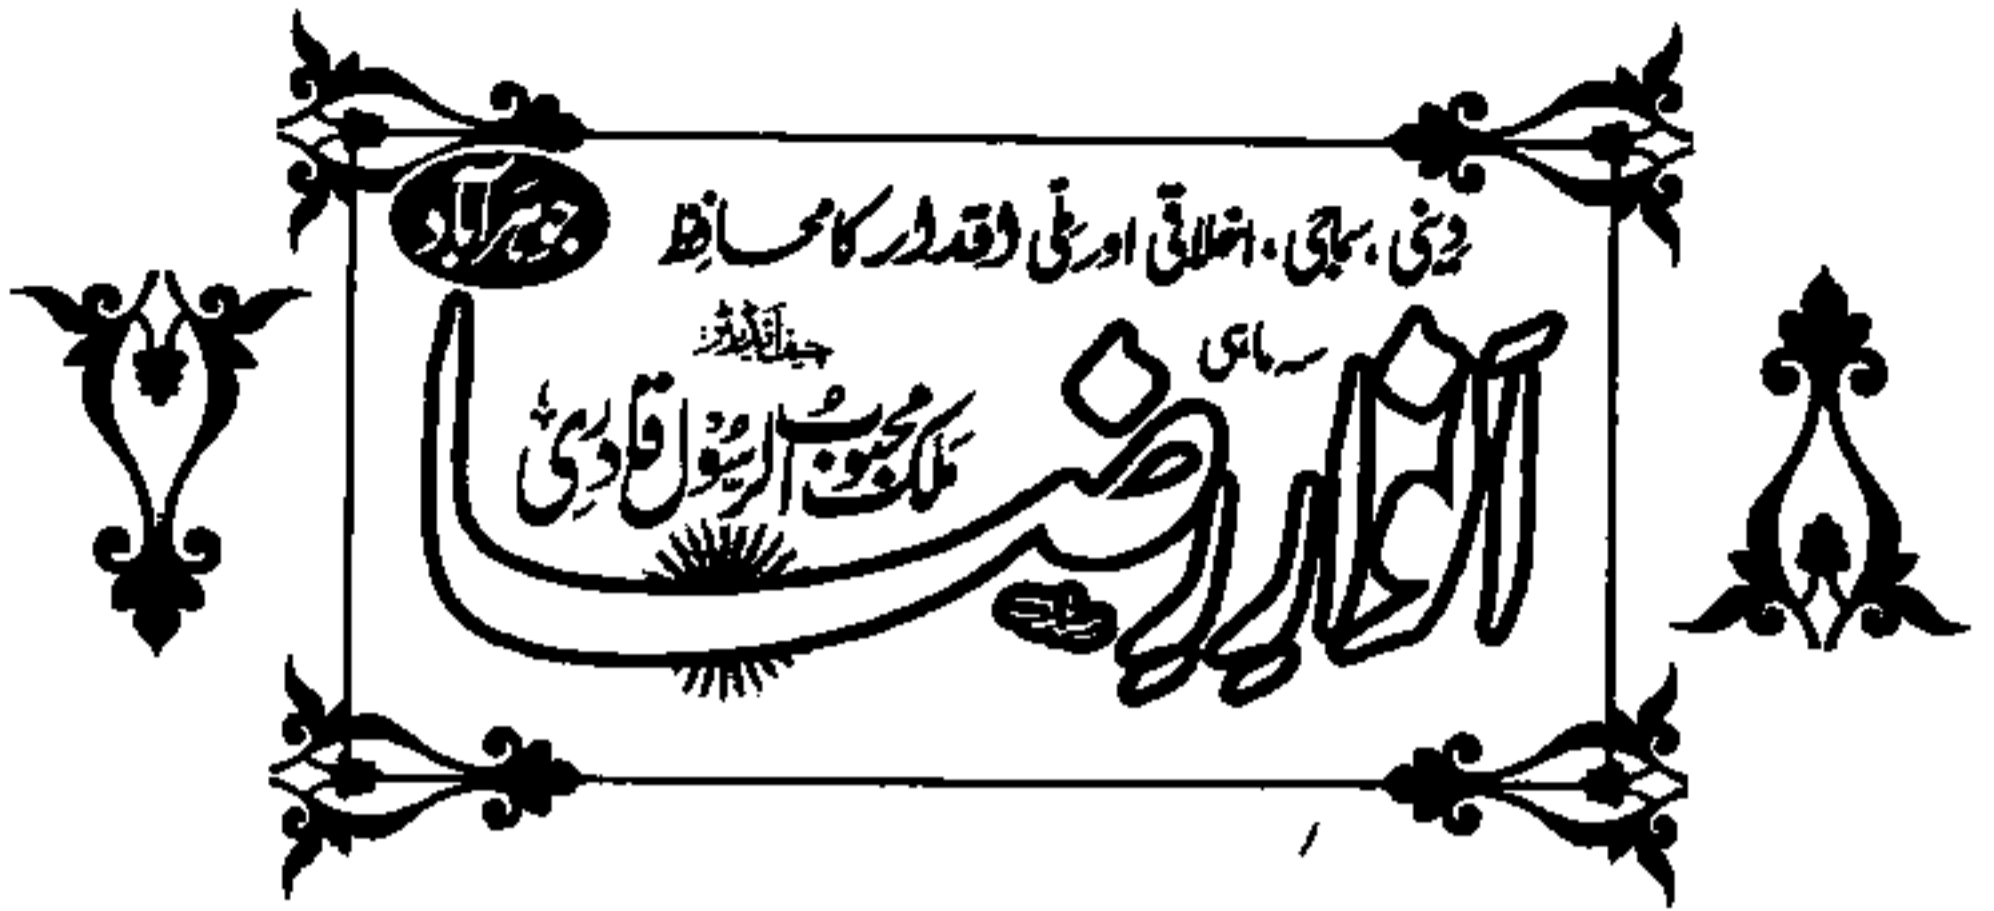 دینی، سماجی، اخلاقی اور ملی اقدار کا محافظ
جوہرآباد
سہ ماہی
انوار رضا
چیف ایڈیٹر:
ملک محبوب الرسول قادری